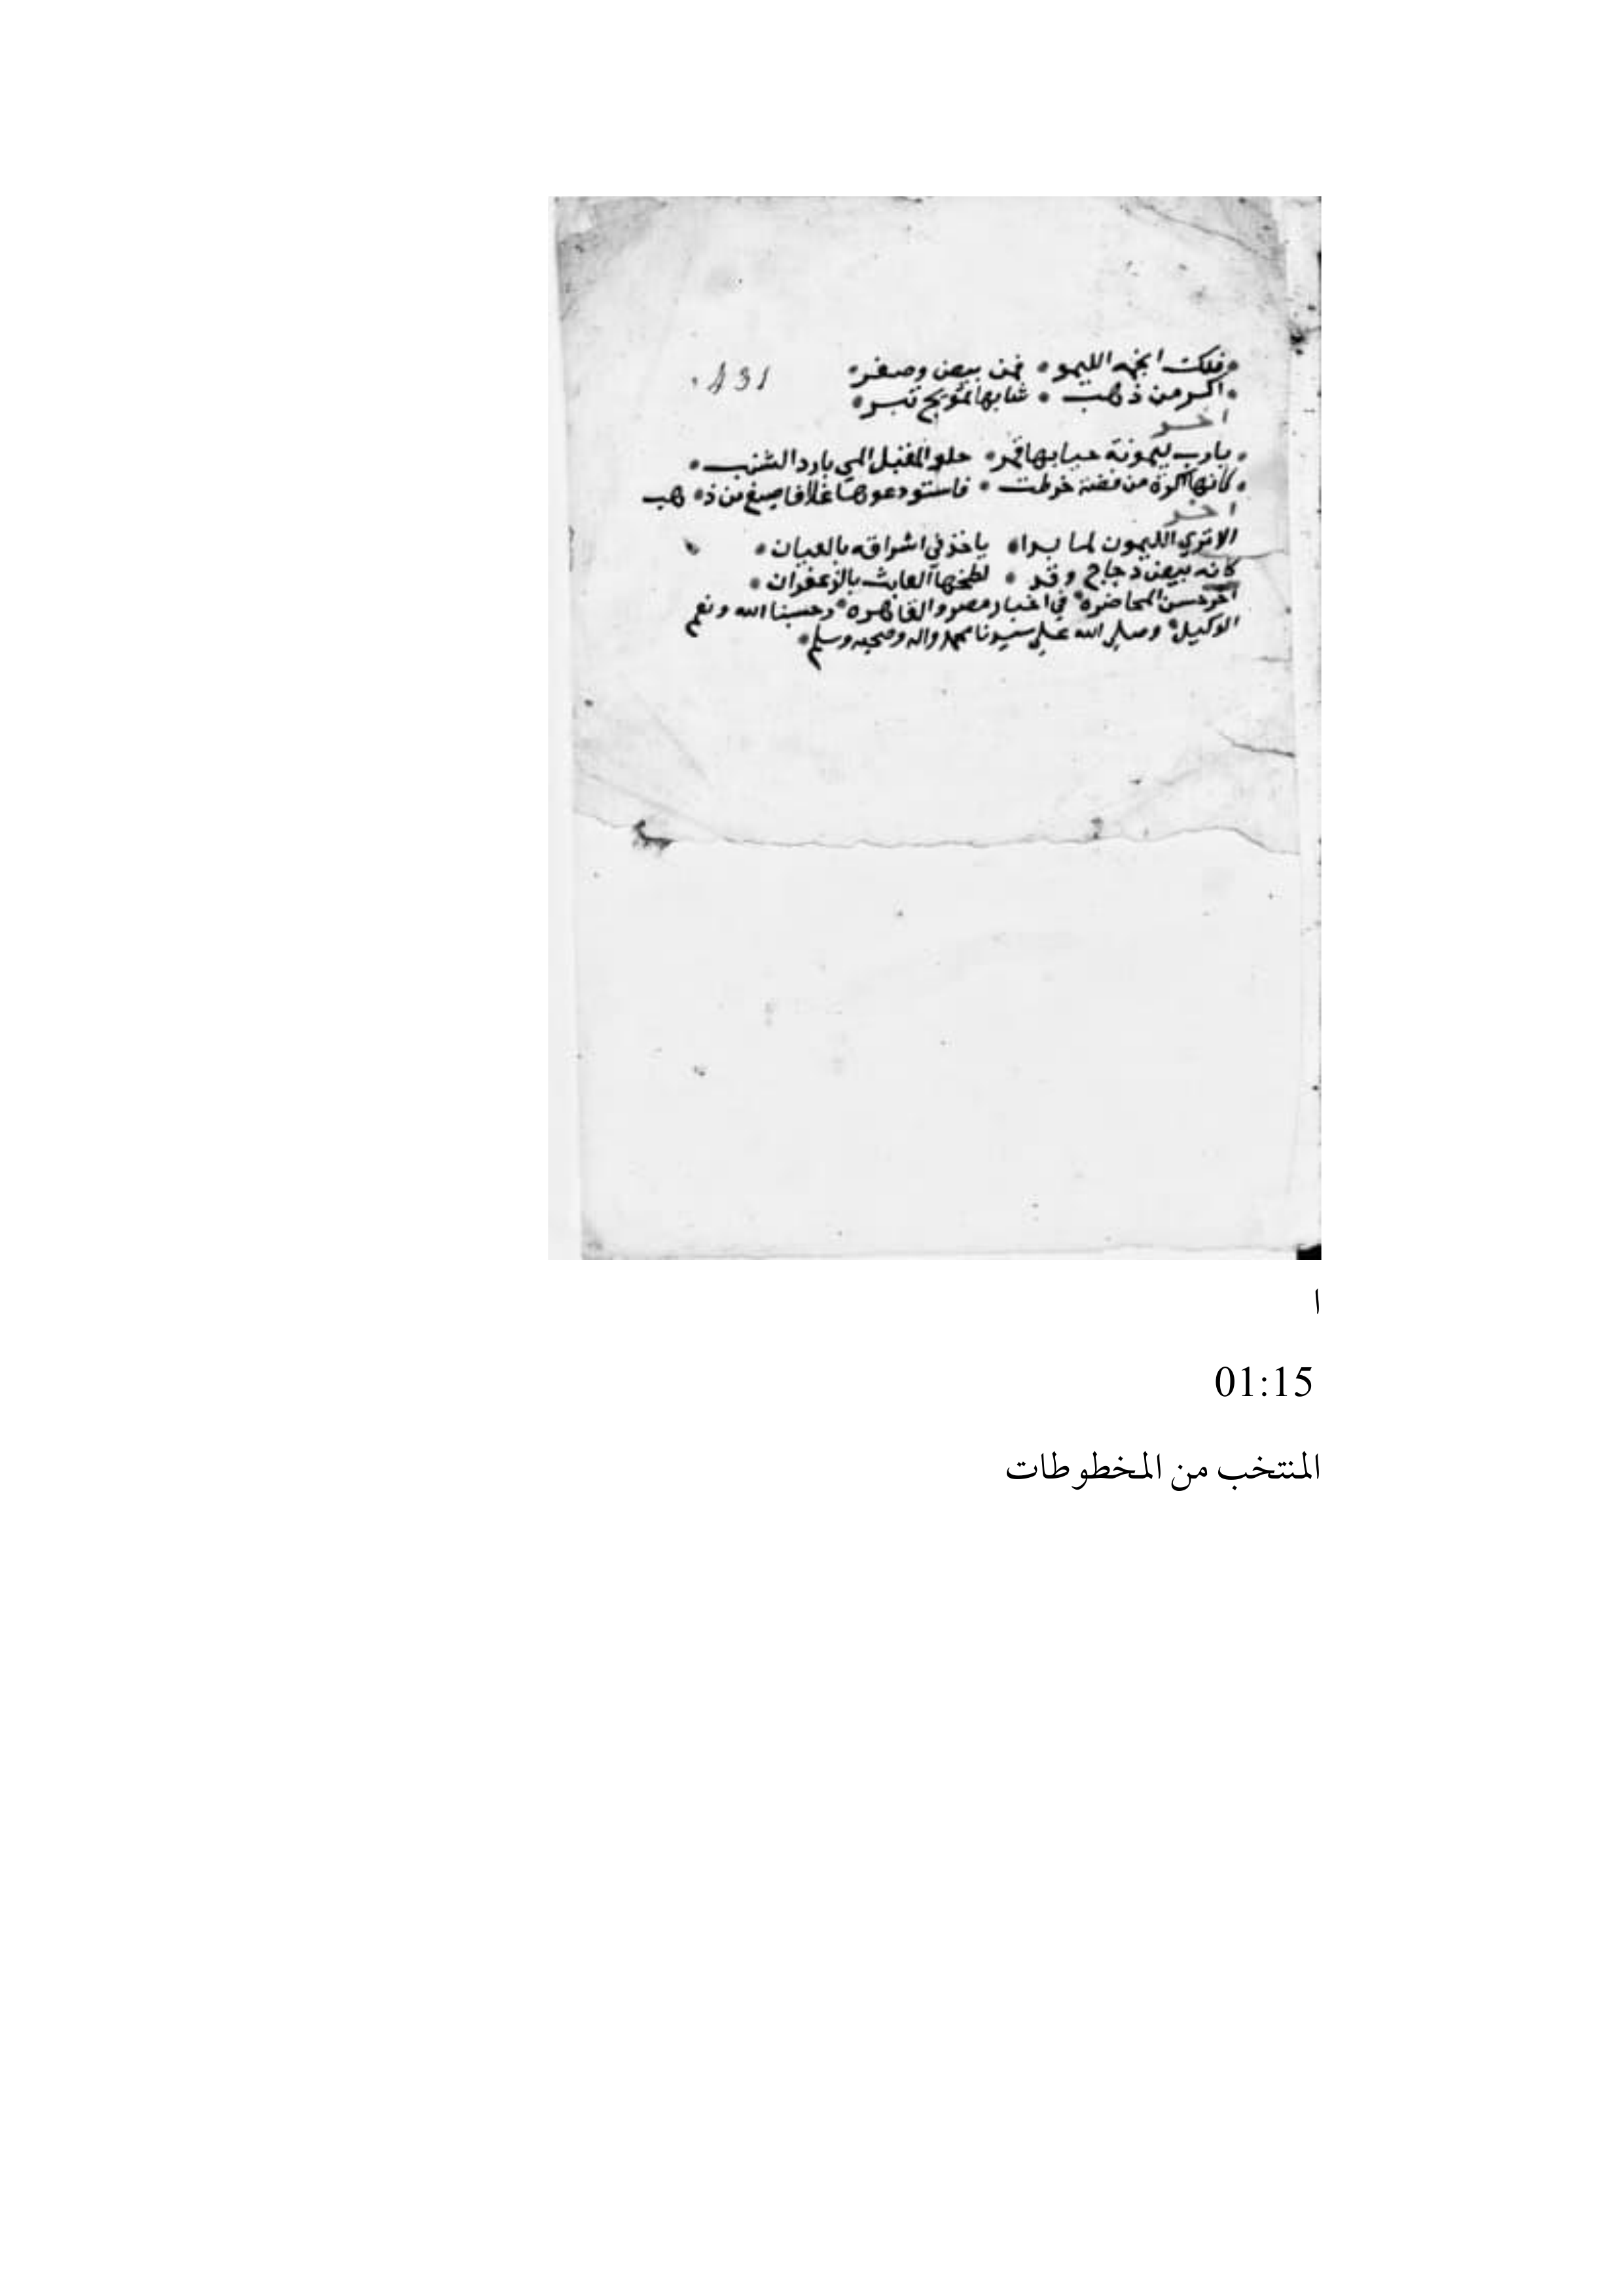 فلك انجمه الليمو • فمن بيض وصفر • 431
• اكر من ذهب • شابها تمويج تبر •
اخر
• يارب ليمونة حيا بها قمر • حلو المقبل المي بارد الشنب •
• كانها اكرة من فضة خرطت • فاستودعوها غلافا صيغ من ذ • هب
اخر
الا تري الليمون لما بدا • ياخذ في اشراقه بالعيان •
كانه بيض دجاج وقد • لطخها العابث بالزعفران •
اخر حسن المحاضرة في اخبار مصر والقاهرة وحسبنا الله ونعم
الوكيل وصلي الله علي سيدنا محمد واله وصحبه وسلم •
ا
01:15
المنتخب من المخطوطات